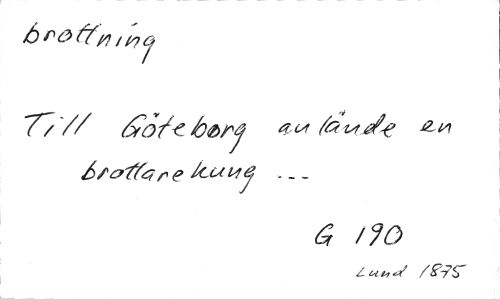 brottning
Till Göteborg anlände en
brottarekung ...
G 190
Lund 1875